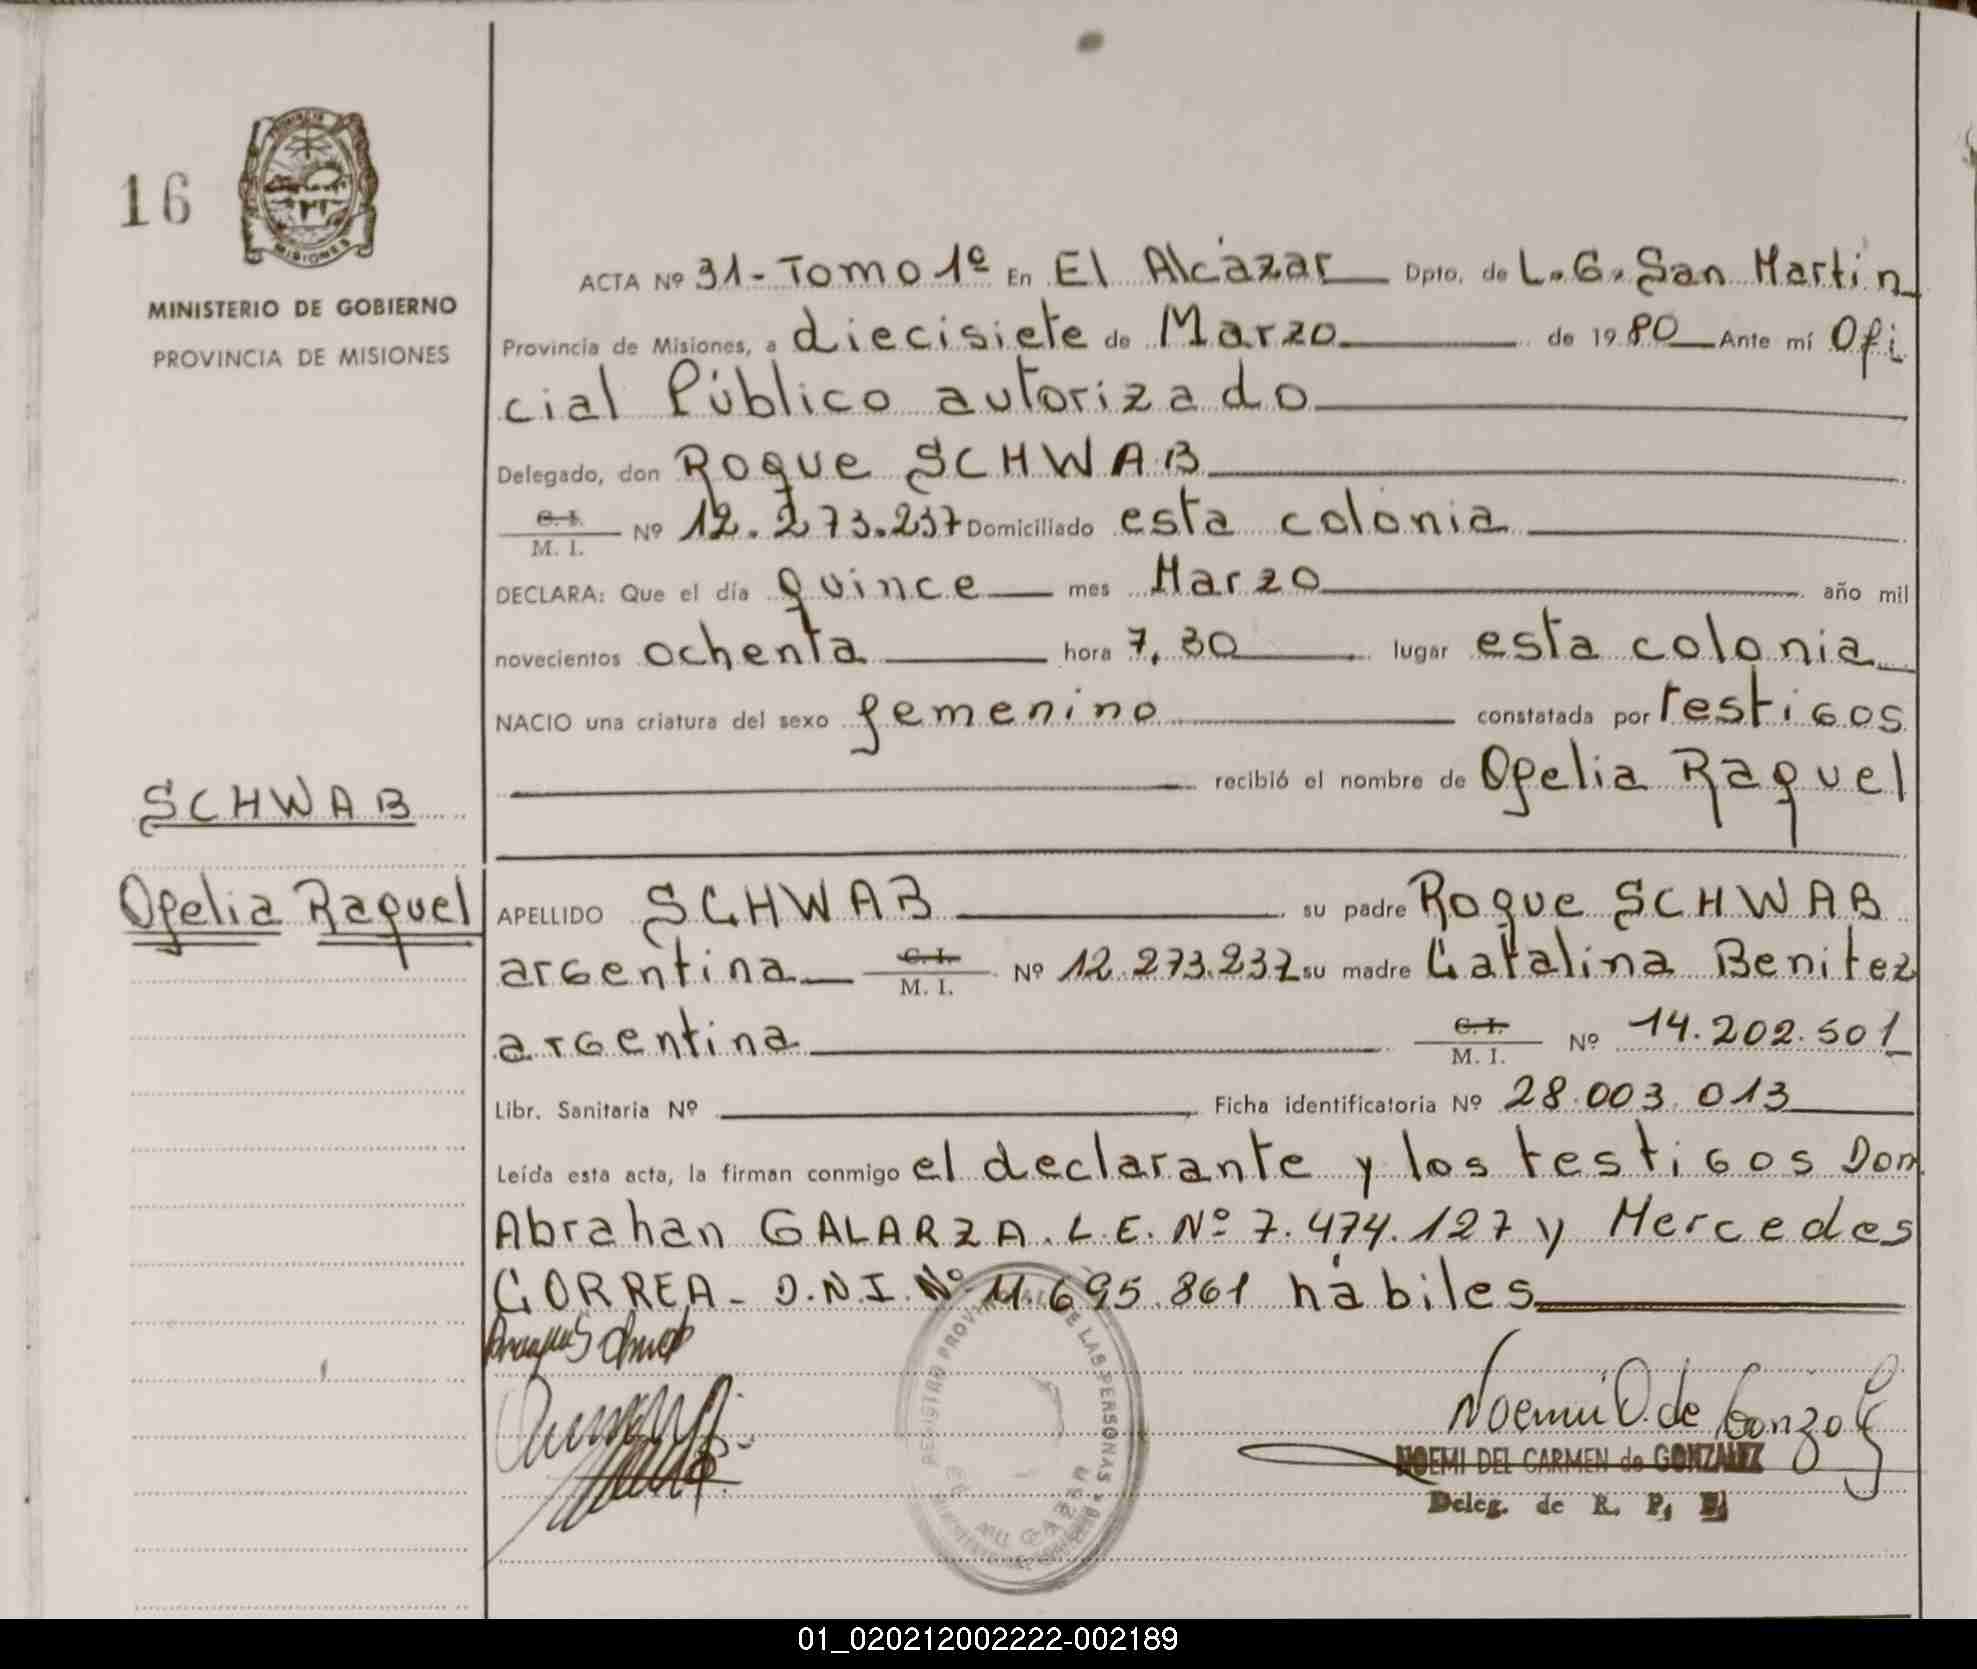 16
MISIONES
MINISTERIO DE GOBIERNO
PROVINCIA DE MISIONES
ACTA Nº 31 - Tomo 1º En El Alcázar Dpto. de L. G. San Martín
Provincia de Misiones, a diecisiete de Marzo de 1980 Ante mí Ofi
cial Público autorizado
Delegado, don Roque SCHWAB
C. I.
M. I. Nº 12.273.237 Domiciliado esta colonia
DECLARA: Que el día quince mes Marzo año mil
novecientos ochenta hora 7,30 lugar esta colonia
NACIO una criatura del sexo femenino constatada por testigos
recibió el nombre de Ofelia Raquel
SCHWAB
Ofelia Raquel
APELLIDO SCHWAB su padre Roque SCHWAB
argentina C. I.
M. I. Nº 12.273.237 su madre Catalina Benitez
argentina C. I.
M. I. Nº 14.202.501
Libr. Sanitaria Nº Ficha identificatoria Nº 28.003.013
Leída esta acta, la firman conmigo el declarante y los testigos Don
Abrahan GALARZA. L.E. Nº 7.474.127 y Mercedes
CORREA - D.N.I. Nº 11.695.861 hábiles
REGISTRO PROVINCIAL DE LAS PERSONAS
Noemi C. de Gonzalez
NOEMI DEL CARMEN de GONZALEZ
Deleg. de R. P.
01_020212002222-002189